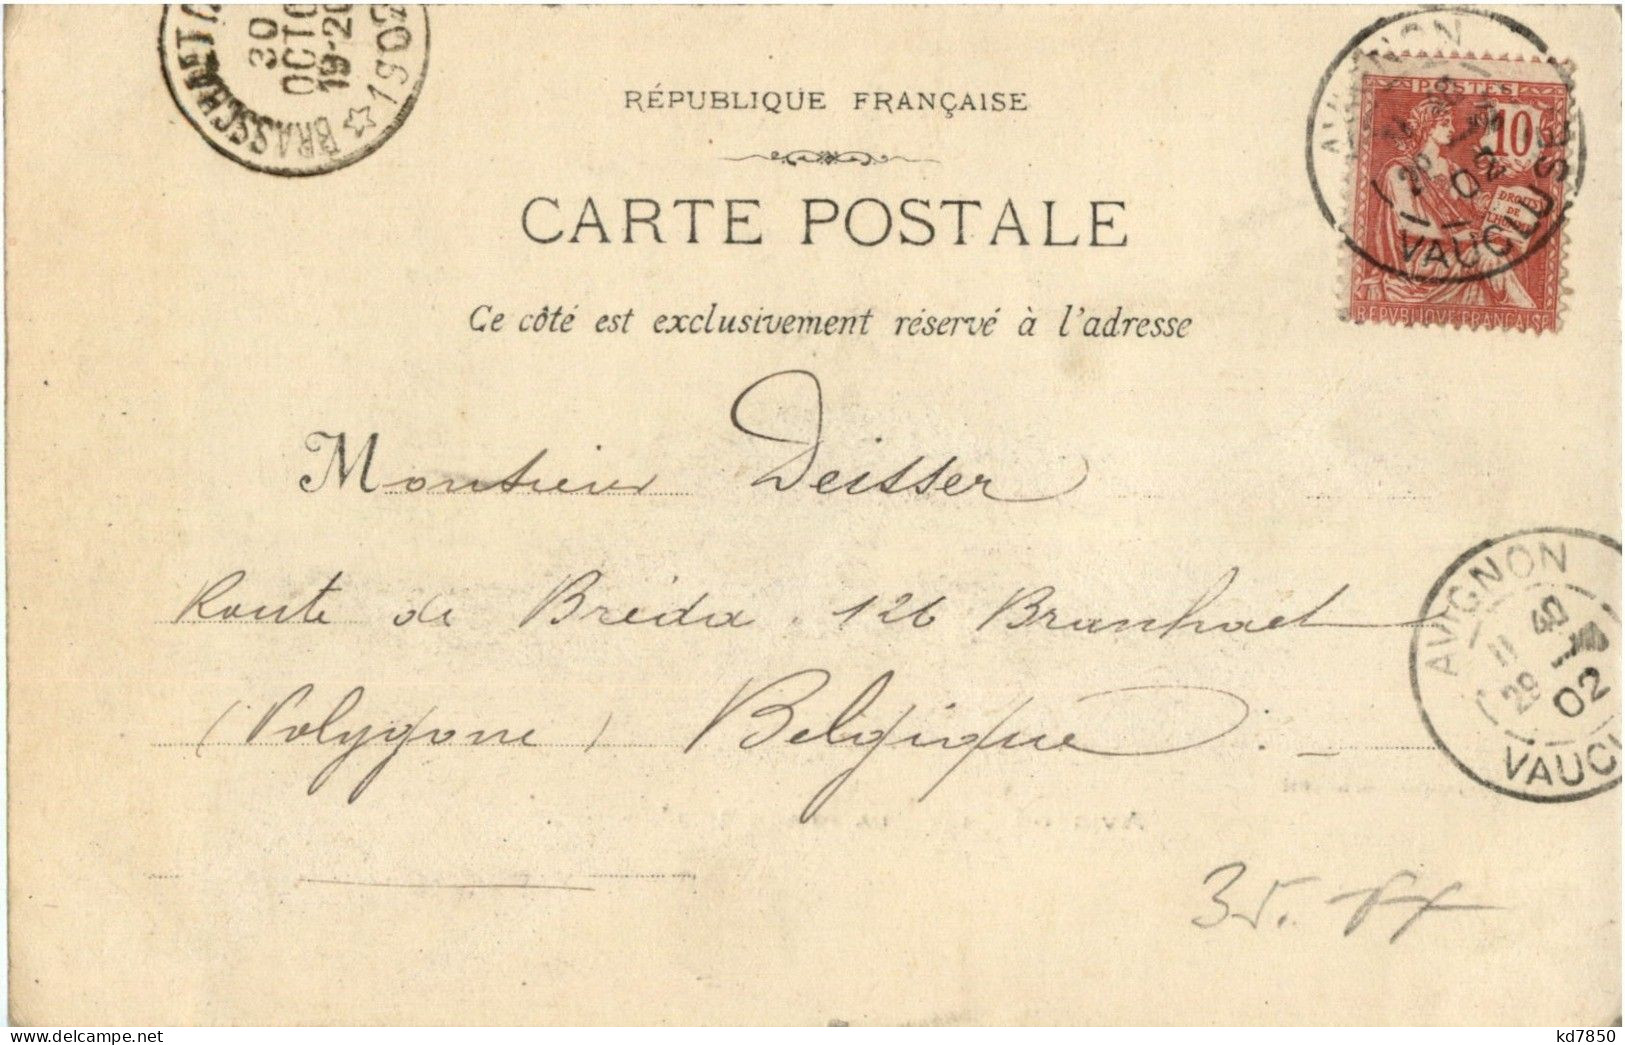 BRASSCHAET
30
OCTO
19-20
190
RÉPUBLIQUE FRANÇAISE
CARTE POSTALE
Ce côté est exclusivement réservé à l'adresse
POSTES
10
DROITS
DE
REPVBLIQVE FRANÇAISE
AVIGNON
02
VAUCLUSE
Monsieur Deisser
Route de Bréda . 126 Brasschaet
(Polygone) Belgique
AVIGNON
11 40
29
02
VAUCL
35.
kd7850